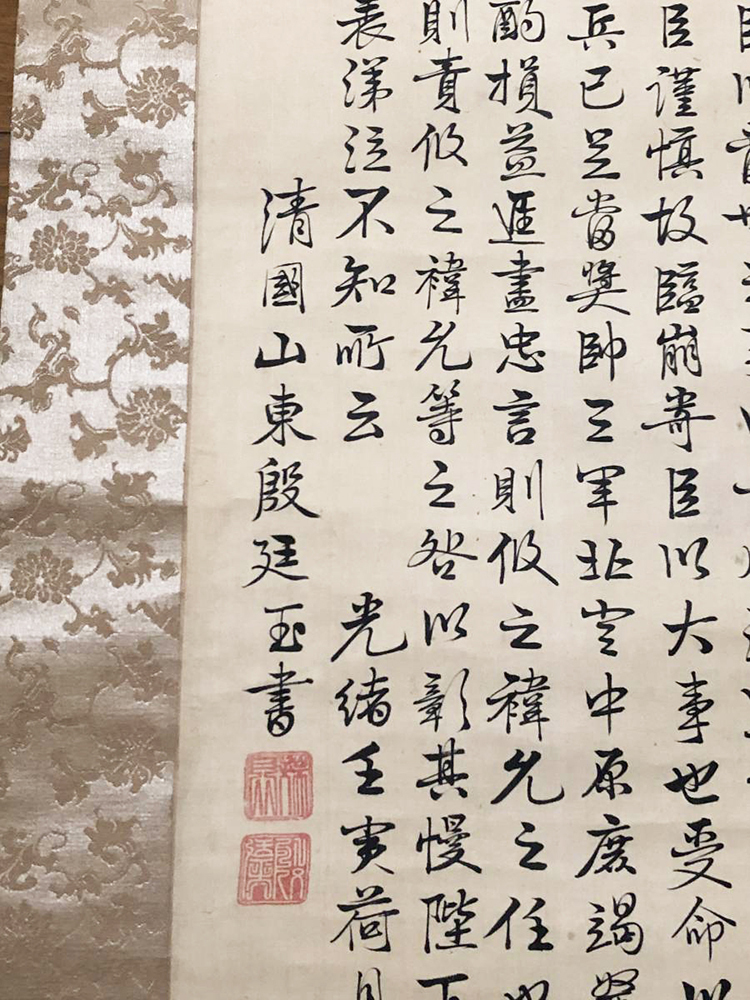 臣謹慎故臨崩寄臣以大事也受命以
兵已足當獎帥三軍北定中原庶竭駑
酌損益進盡忠言則攸之禕允之任也
則責攸之禕允等之咎以彰其慢陛下
表涕泣不知所云 光緒壬寅荷月
清國山東殷廷玉書